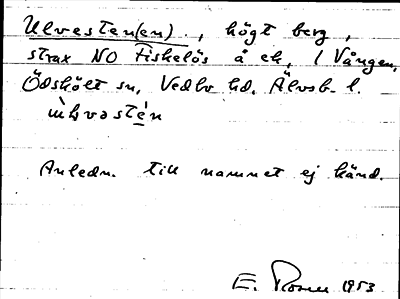 Ulvesten(en), högt berg,
strax NO Fiskelös å ek, i Vången,
Ödskölt sn, Vedbo hd, Älvsb. l.
Anledn. till namnet ej känd.
E. 1953